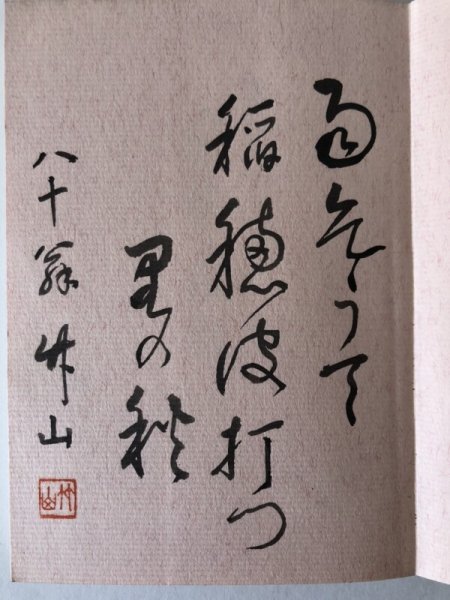 雨 て
稲穂波打つ
里の秋
八十翁 竹山
竹山